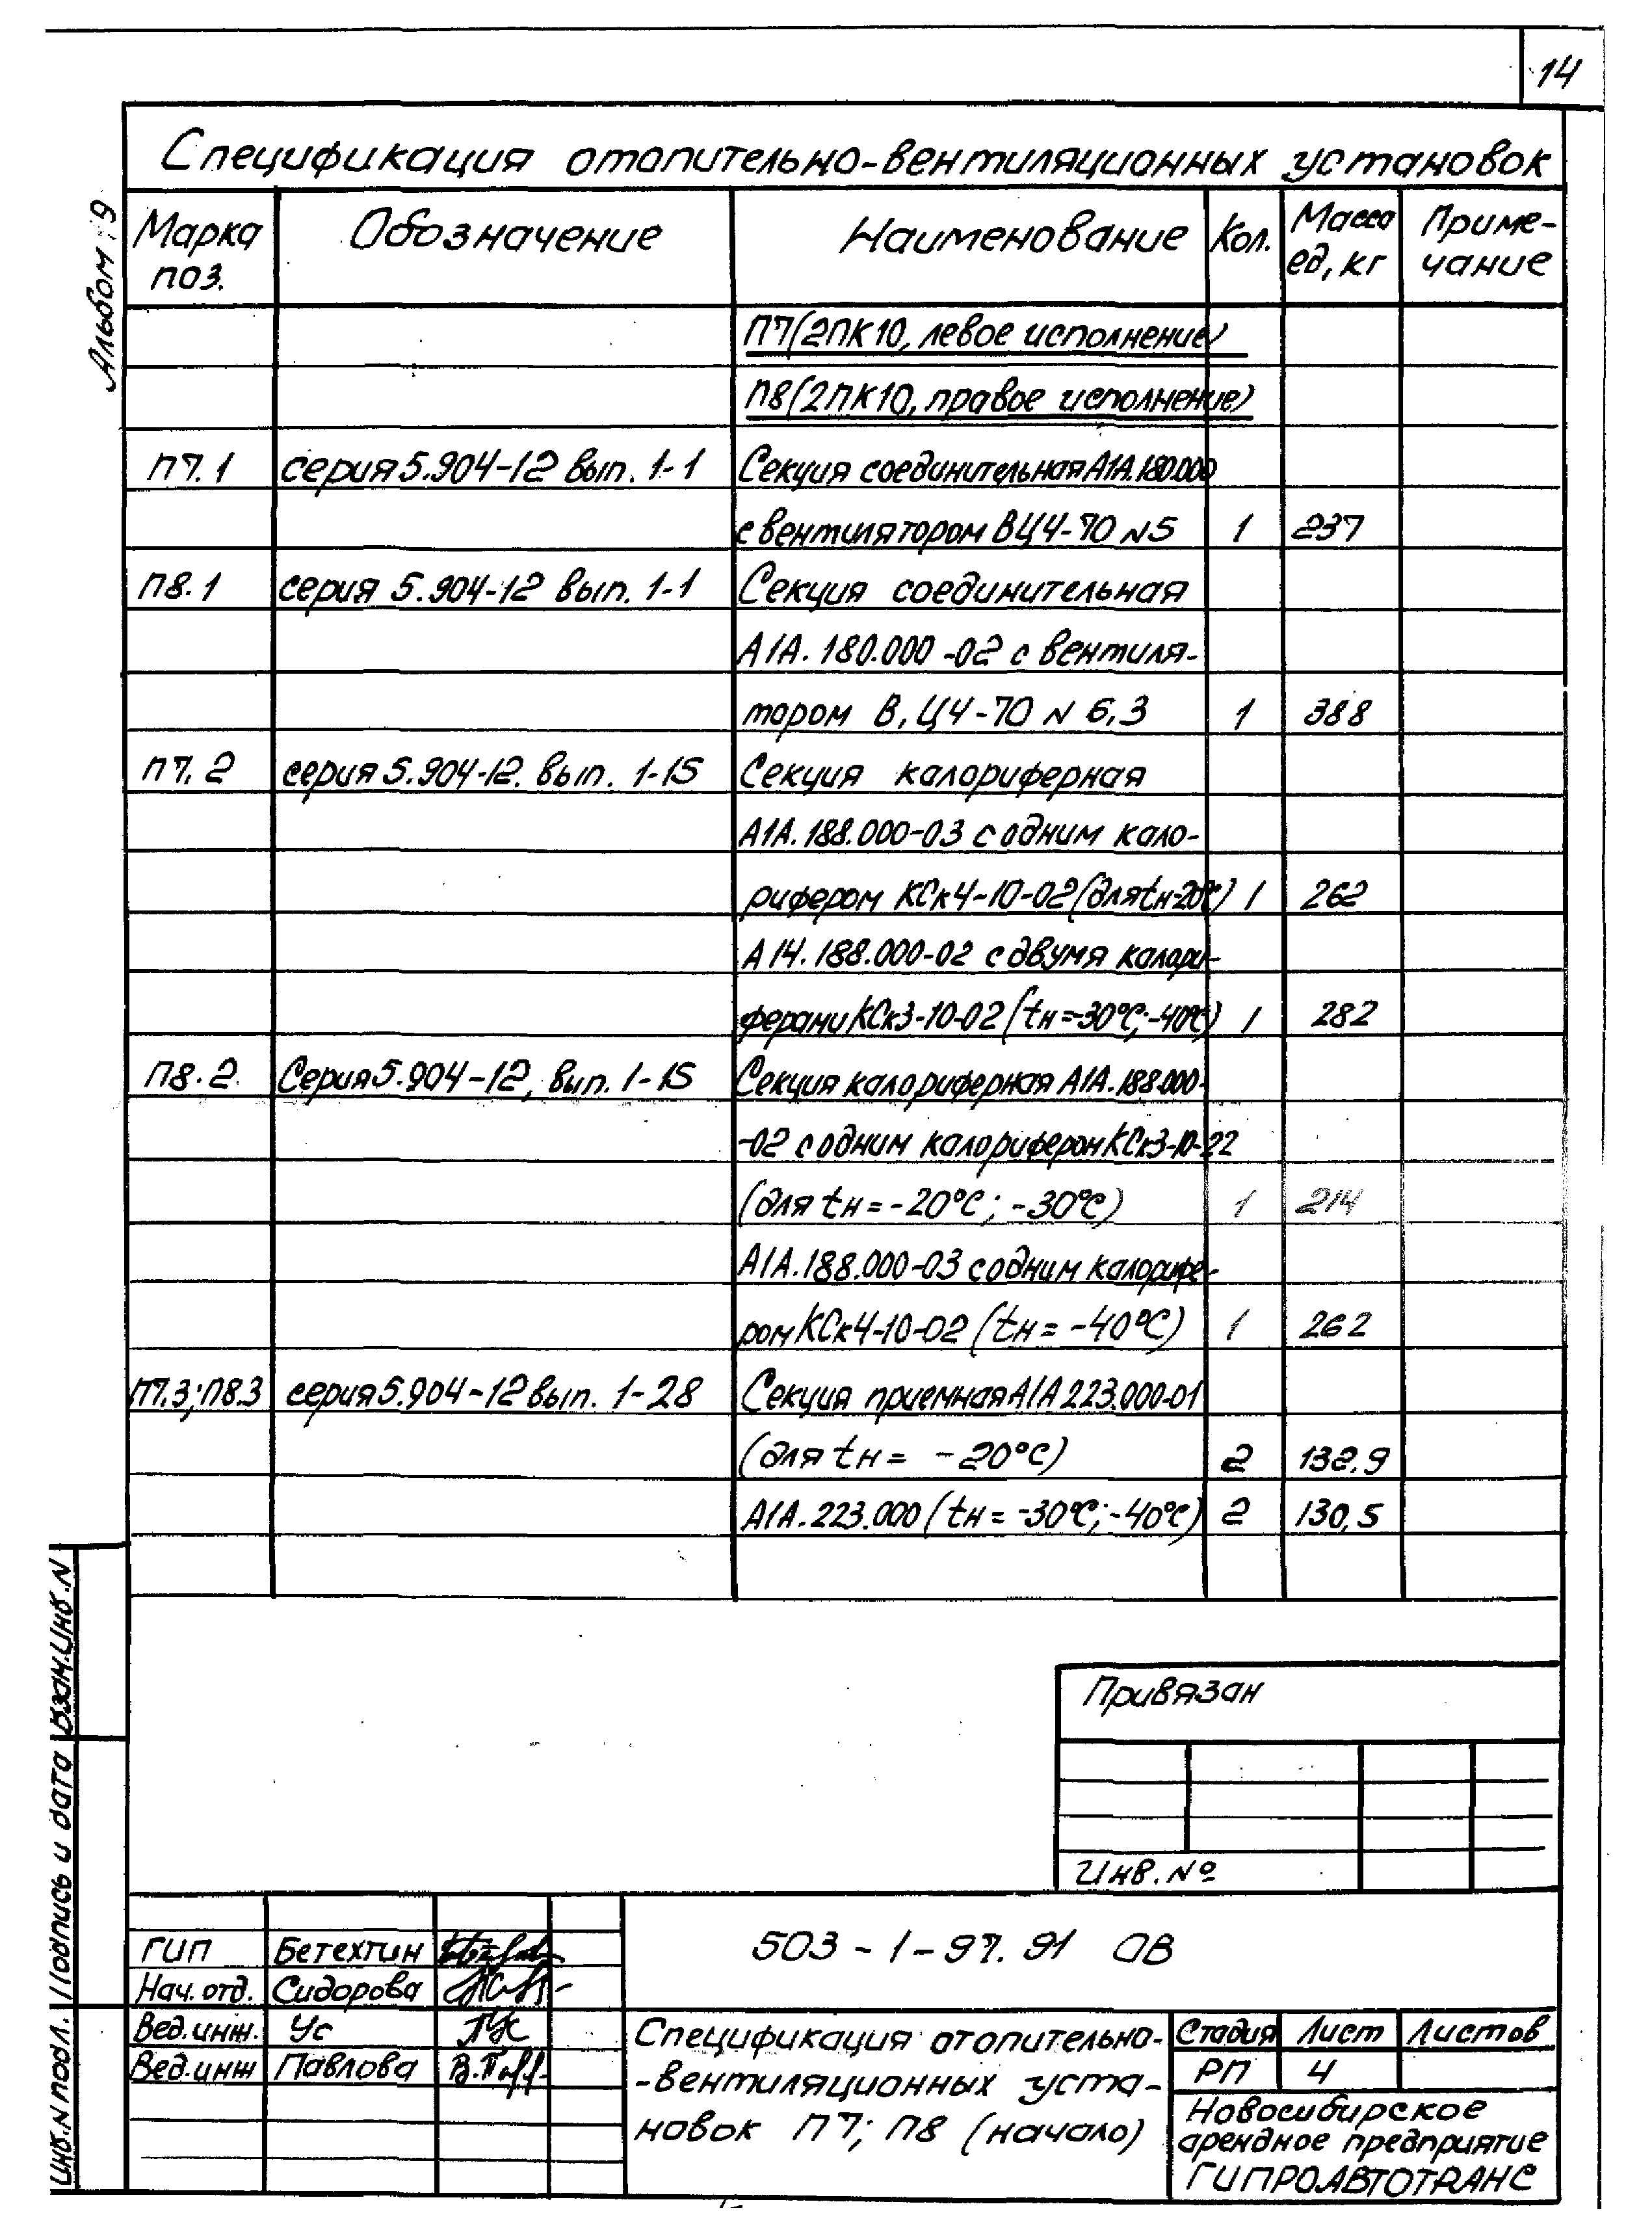 14
Альбом 9
Спецификация отопительно-вентиляционных установок
Марка поз. Обозначение Наименование Кол. Масса ед, кг Приме-чание
П7(2ПК10, левое исполнение)
П8(2ПК10, правое исполнение)
П7.1 серия 5.904-12 вып. 1-1 Секция соединительная А1А.180.000
с вентилятором ВЦ4-70 N5 1 237
П8.1 серия 5.904-12 вып. 1-1 Секция соединительная
А1А.180.000-02 с вентиля-
тором В,Ц4-70 N 6,3 1 388
П7.2 серия 5.904-12. вып. 1-15 Секция калориферная
А1А.188.000-03 с одним кало-
рифером КСк4-10-02 (для tн-20°С) 1 262
А14.188.000-02 с двумя калори-
ферани КСк3-10-02 (tн=-30°С;-40°С) 1 282
П8.2 Серия 5.904-12, вып. 1-15 Секция калориферная А1А.188.000-
-02 с одним калорифером КСк3-10-22
(для tн=-20°С; -30°С) 1 214
А1А.188.000-03 с одним калорифе-
ром КСк4-10-02 (tн= -40°С) 1 262
П7.3;П8.3 серия 5.904-12 вып. 1-28 Секция приемная А1А 223.000-01
(для tн= -20°С) 2 132.9
А1А.223.000 (tн= -30°С;-40°С) 2 130,5
Привязан
Инв. №
503-1-97.91 ОВ
ГИП Бетехтин
Нач. отд. Сидорова
Вед. инж. Ус
Вед. инж Павлова В.Пав
Спецификация отопительно-
-вентиляционных уста-
новок П7; П8 (начало)
Стадия Лист Листов
РП 4
Новосибирское
арендное предприятие
ГИПРОАВТОТРАНС
Взам. инв. N
Подпись и дата
Инв. N подл.